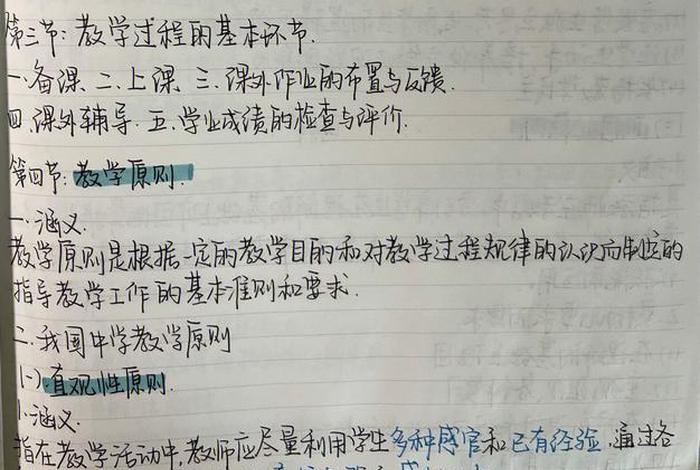 第三节:教学过程的基本环节.
一.备课、二.上课、三.课外作业的布置与反馈.
四.课外辅导.五.学业成绩的检查与评价.
第四节:教学原则.
一.涵义.
教学原则是根据一定的教学目的和对教学过程规律的认识而制定的
指导教学工作的基本准则和要求.
二.我国中学教学原则
(一).直观性原则.
1.涵义.
指在教学活动中,教师应尽量利用学生多种感官和已有经验,通过各